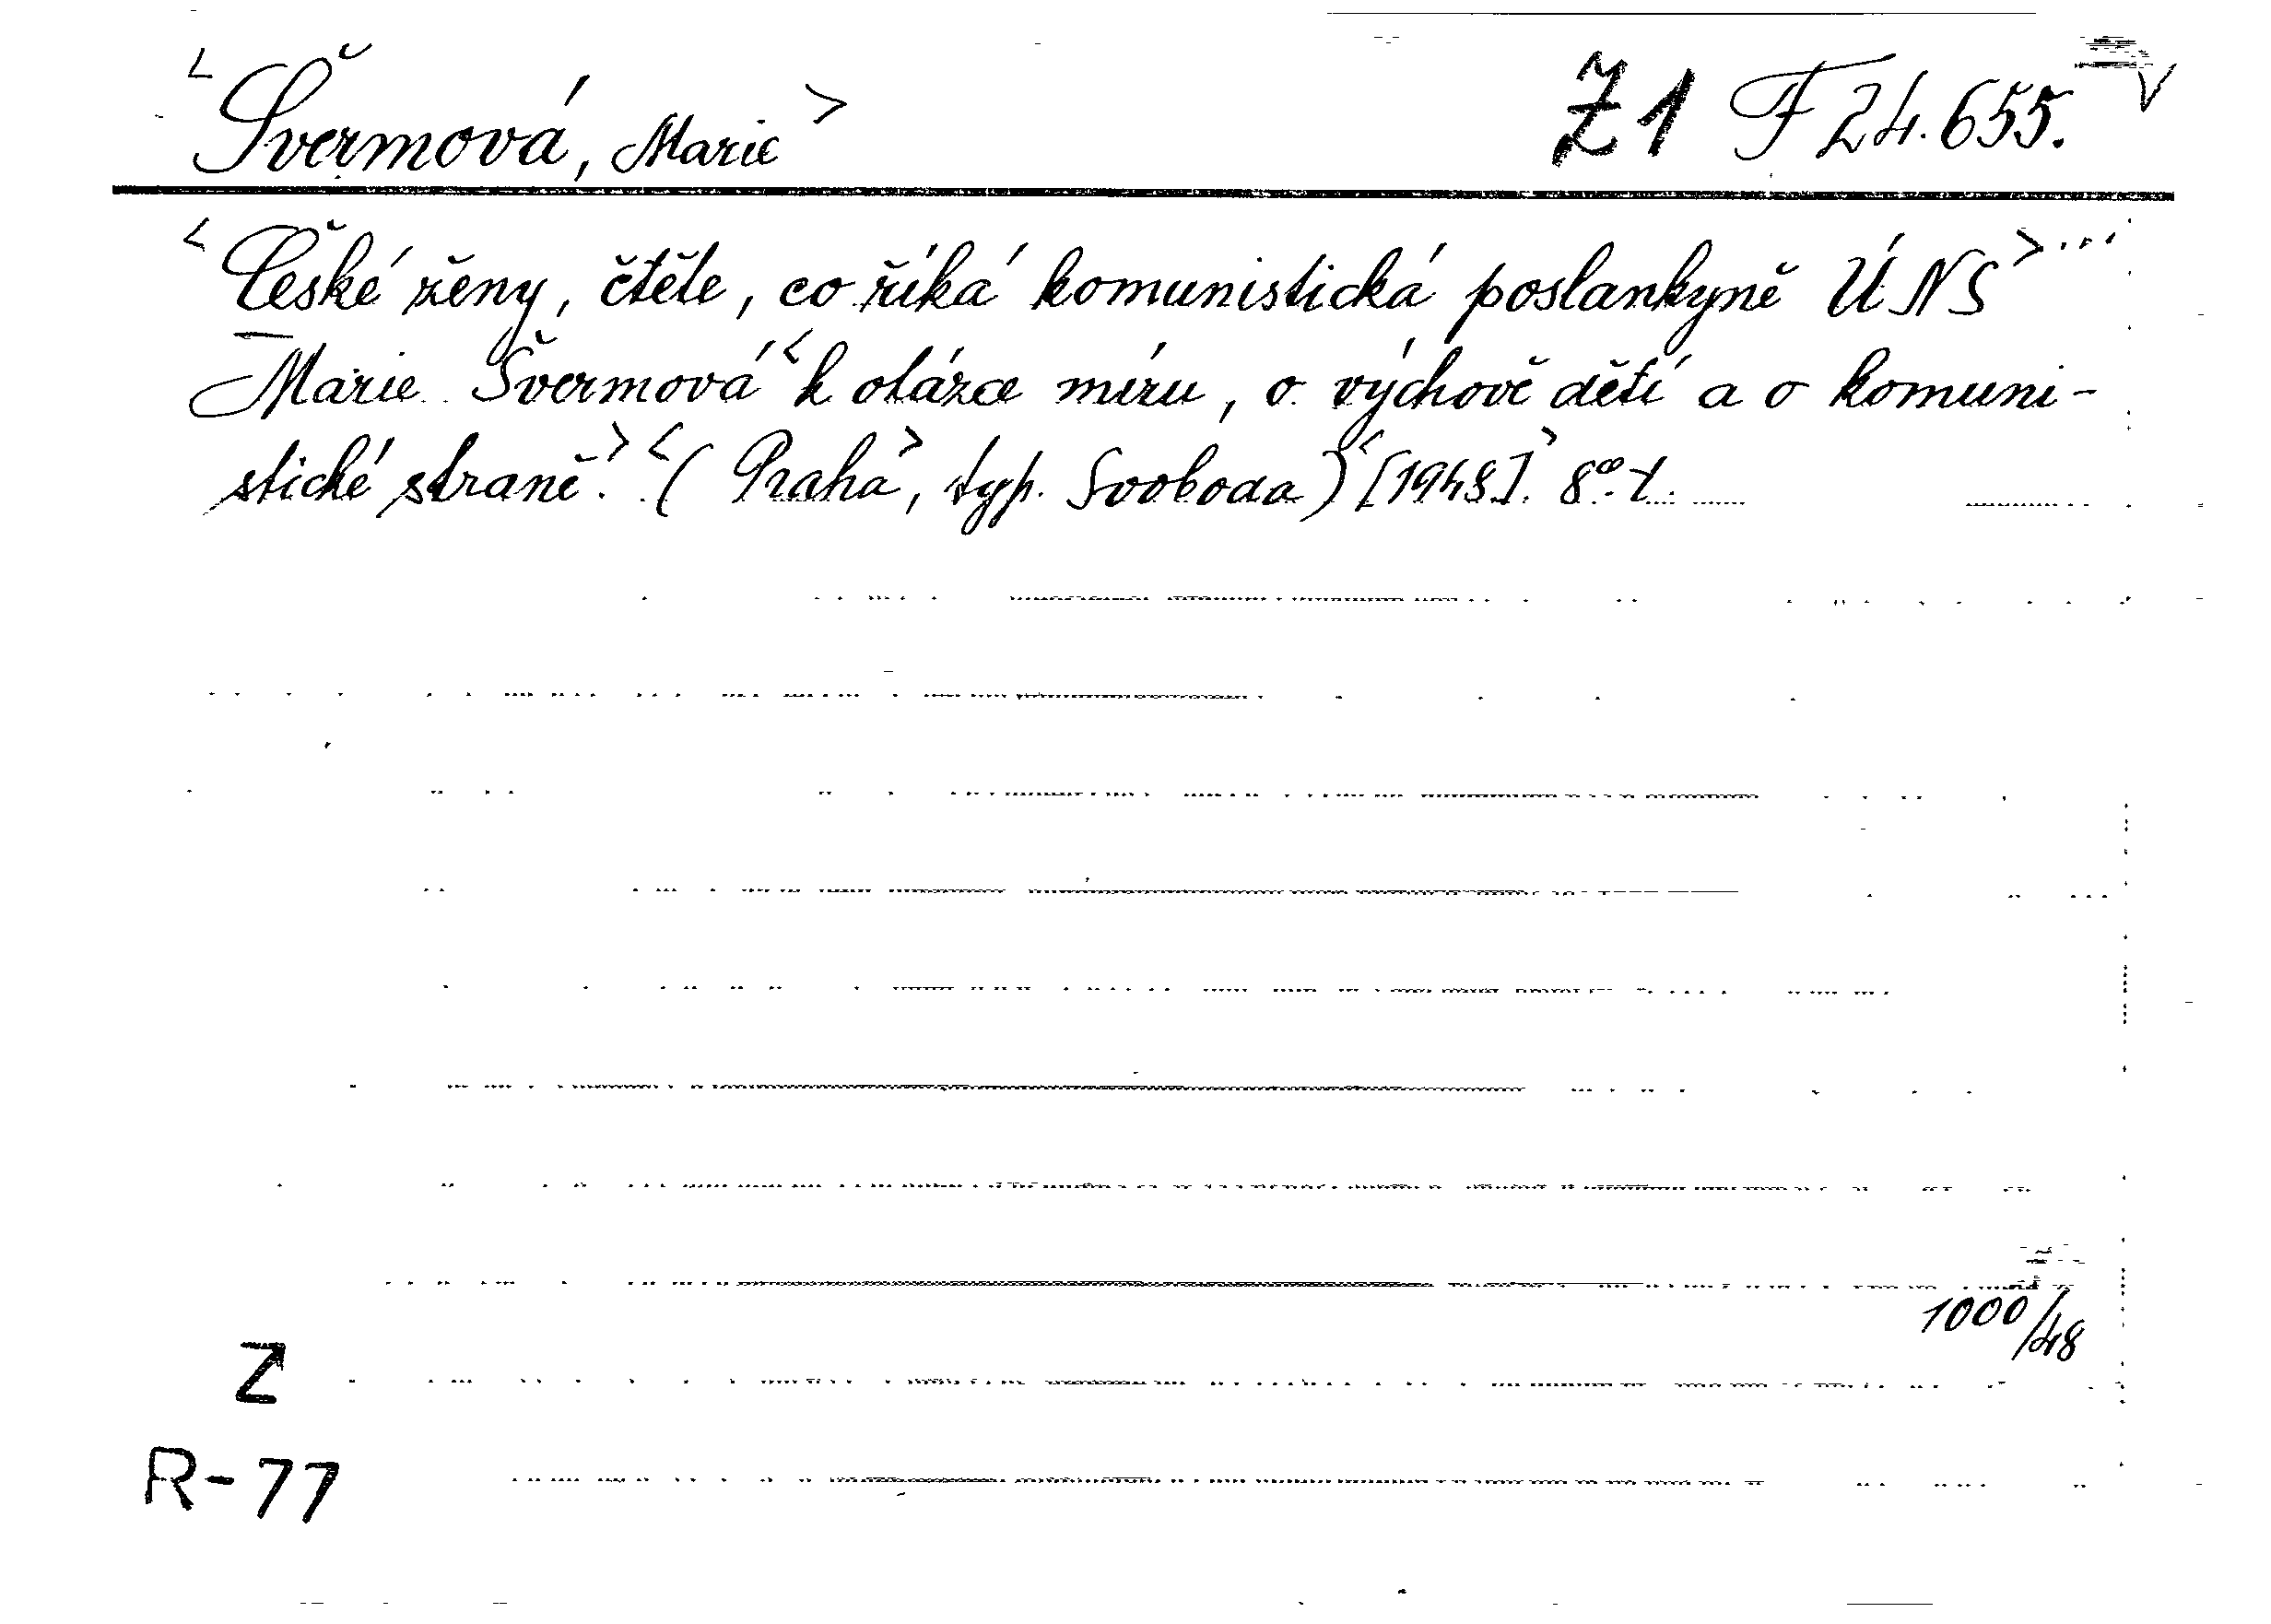 <Švermová, Marie> Z1 F 24.655. V
<České ženy, čtěte, co říká komunistická poslankyně ÚNS>...
Marie Švermová <k otázce míru, o výchově dětí a o komuni-
stické straně.> <(Praha>, typ. Svoboda) <[1948].> 8°.
1000/48
Z
R-77